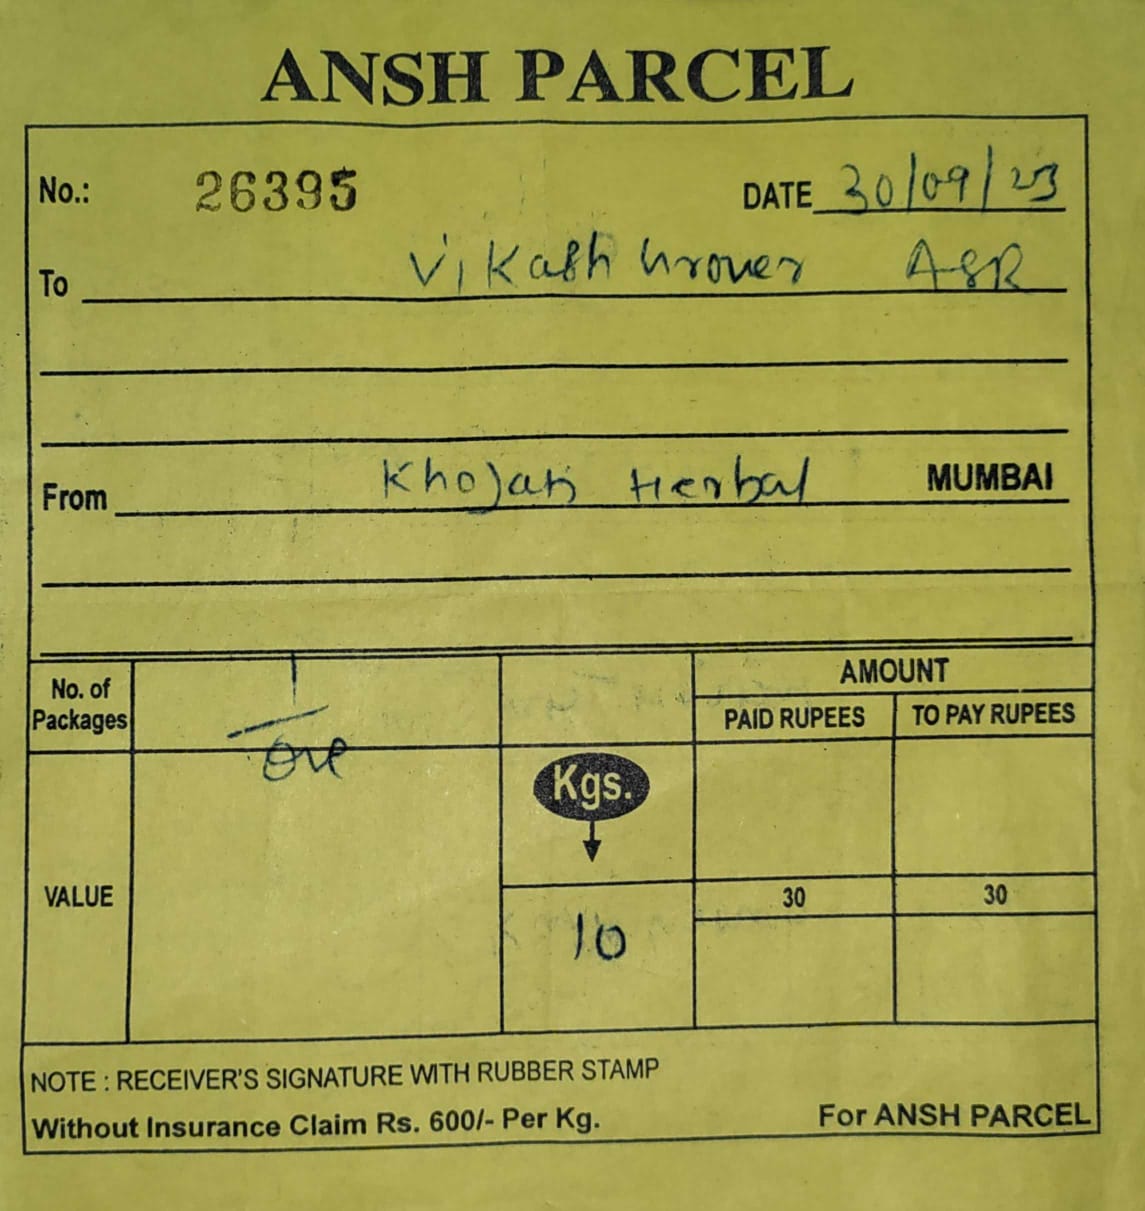 ANSH PARCEL
No.: 26395 DATE 30/09/23
To Vikash Grover ASR
From Khojati Herbal MUMBAI
No. of Packages 1
one
AMOUNT
PAID RUPEES TO PAY RUPEES
VALUE
Kgs.
30 30
10
NOTE : RECEIVER'S SIGNATURE WITH RUBBER STAMP
Without Insurance Claim Rs. 600/- Per Kg. For ANSH PARCEL